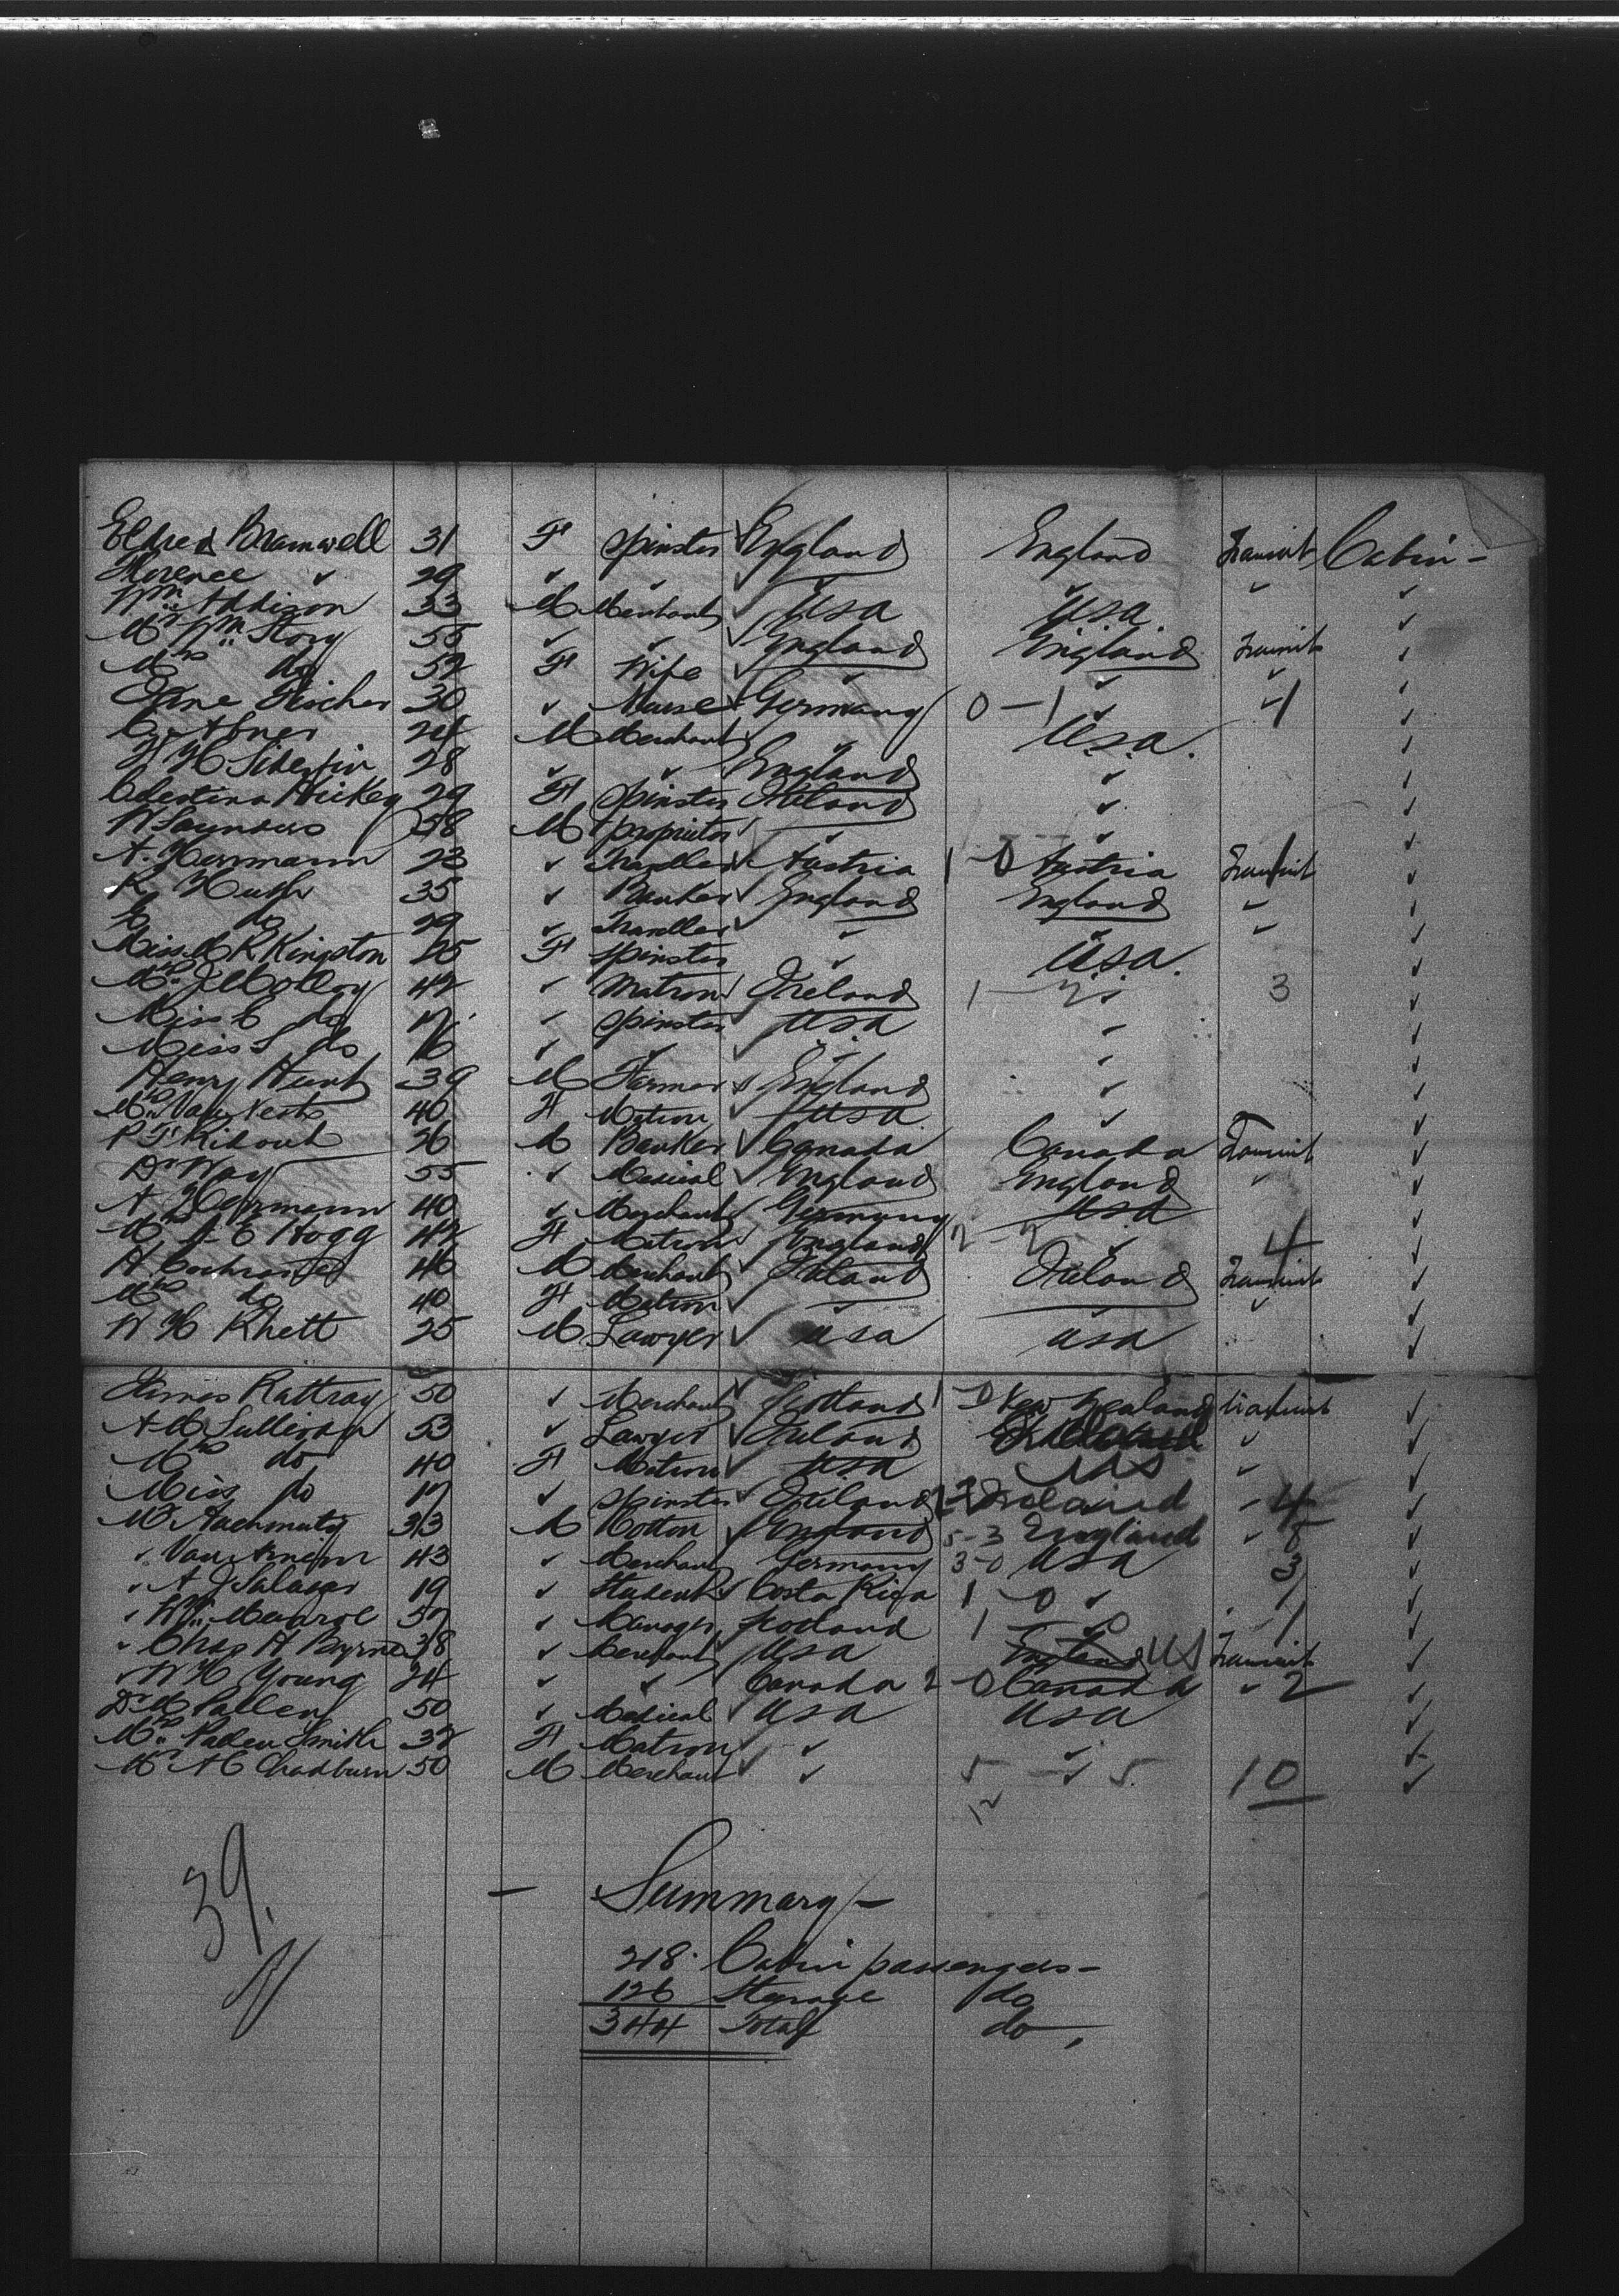 Eldred Bramwell 31 F Spinster England England Transit Cabin -
Florence " 29 " " " " " "
Wm Addison 33 M Merchant USA USA "
Mr Wm Story 55 " " England England Transit "
Mrs do 52 F Wife " " " "
Jane Fischer 30 " Nurse Germany 0-1 " 1 "
C. Abner 24 M Merchant " USA. "
H H Sibertin 28 " " England " "
Celestina Hickey 29 F Spinster Ireland " "
W Saunders 38 M proprietor " " "
A. Hermann 23 " Traveller Austria 1-0 Austria Transit "
R Hush 35 " Banker England England " "
do 29 " Traveller " " "
Miss M R Kingston 25 F Spinster " USA. "
Mrs J Molloy 42 " Matron Ireland 1-2 " 3 "
Miss C do 17 " Spinster USA " "
Miss S do 16 " " " " "
Henry Hunt 39 M Farmer England " "
Mrs Van Nest 40 F Matron USA " "
P F Ridout 26 M Banker Canada Canada Transit "
Dr Way 55 " Medical England England " "
A Herrmann 40 " Merchant Germany USA "
Mrs A E Hogg 42 F Matron England 2-2 " 4 "
A Cochrane 46 M Merchant Ireland Ireland Transit "
Mrs do 40 F Matron " " "
W H Rhett 25 M Lawyer USA USA "
James Rattray 50 " Merchant Scotland 1-0 New Zealand Transit "
A M Sullivan 53 " Lawyer Ireland " "
Mrs do 40 F Matron USA US " "
Miss do 17 " Spinster Ireland 2-2 Ireland - 4 "
Mr Auchmuty 33 M England 5-3 England " 8 "
" Van Arnim 43 " Merchant Germany 3-0 USA 3 "
" A J Salazar 19 " Student Costa Rica 1-0 " 1 "
" Wm Munroe 57 " Manager Scotland 1-0 1
" Chas A Byrne 38 " Merchant USA England US Transit "
" W H Young 24 " " Canada 2-0 Canada " 2 "
Dr M Pallen 50 " Medical USA USA "
Mrs Pallen Smith 32 F Matron " " "
Mr A C Chadburn 50 M Merchant " 5-5 10 "
12
39.
- Summary -
218. Cabin passengers -
126 Steerage do
344 Total do,